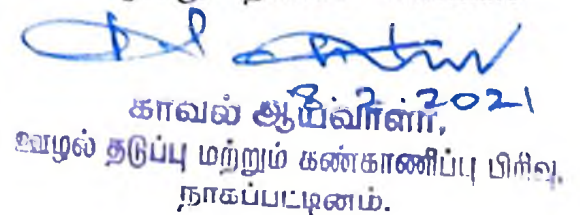 8.2.2021
காவல் ஆய்வாளர்,
ஊழல் தடுப்பு மற்றும் கண்காணிப்பு பிரிவு,
நாகப்பட்டினம்.